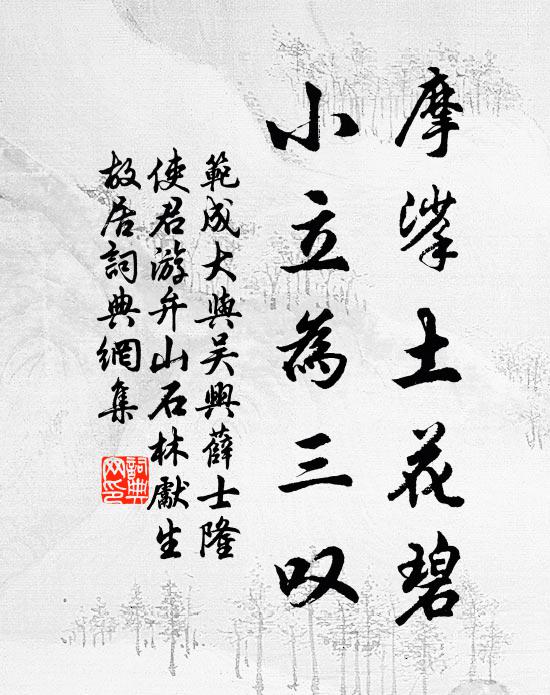 摩挲土花碧
小立為三叹
範成大與吳興薛士隆
使君游弁山石林獻生
故居詞典網集
詞典
网印